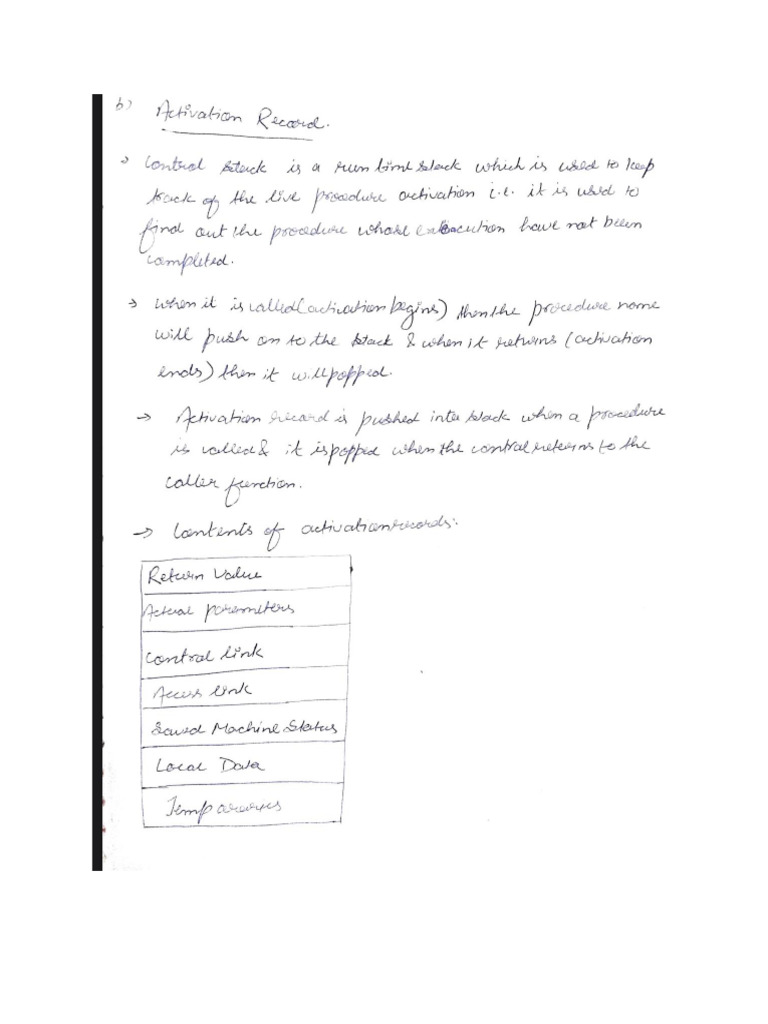 b) Activation Record.
→ Control stack is a run time stack which is used to keep
track of the live procedure activation i.e. it is used to
find out the procedure whose execution have not been
completed.
→ when it is called (activation begins) then the procedure name
will push on to the stack & when it returns (activation
ends) then it will popped.
→ Activation record is pushed into stack when a procedure
is called & it is popped when the control returns to the
caller function.
→ Contents of activation records:
Return Value
Actual parameters
Control link
Access link
Saved Machine Status
Local Data
Temporaries